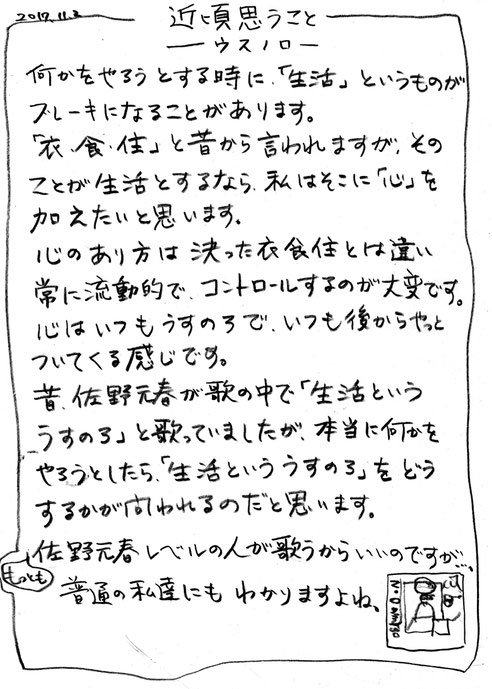 2017.11.2
近頃思うこと
ーウスノローー
何かをやろうとする時に、「生活」というものが
ブレーキになることがあります。
「衣・食・住」と昔から言われますが、その
ことが生活とするなら、私はそこに「心」を
加えたいと思います。
心のあり方は決った衣食住とは違い
常に流動的で、コントロールするのが大変です。
心はいつもうすのろで、いつも後からやっと
ついてくる感じです。
昔、佐野元春が歌の中で「生活という
うすのろ」と歌っていましたが、本当に何かを
やろうとしたら、「生活といううすのろ」をどう
するかが問われるのだと思います。
佐野元春レベルの人が歌うからいいのですが…
もっとも
普通の私達にもわかりますよね。